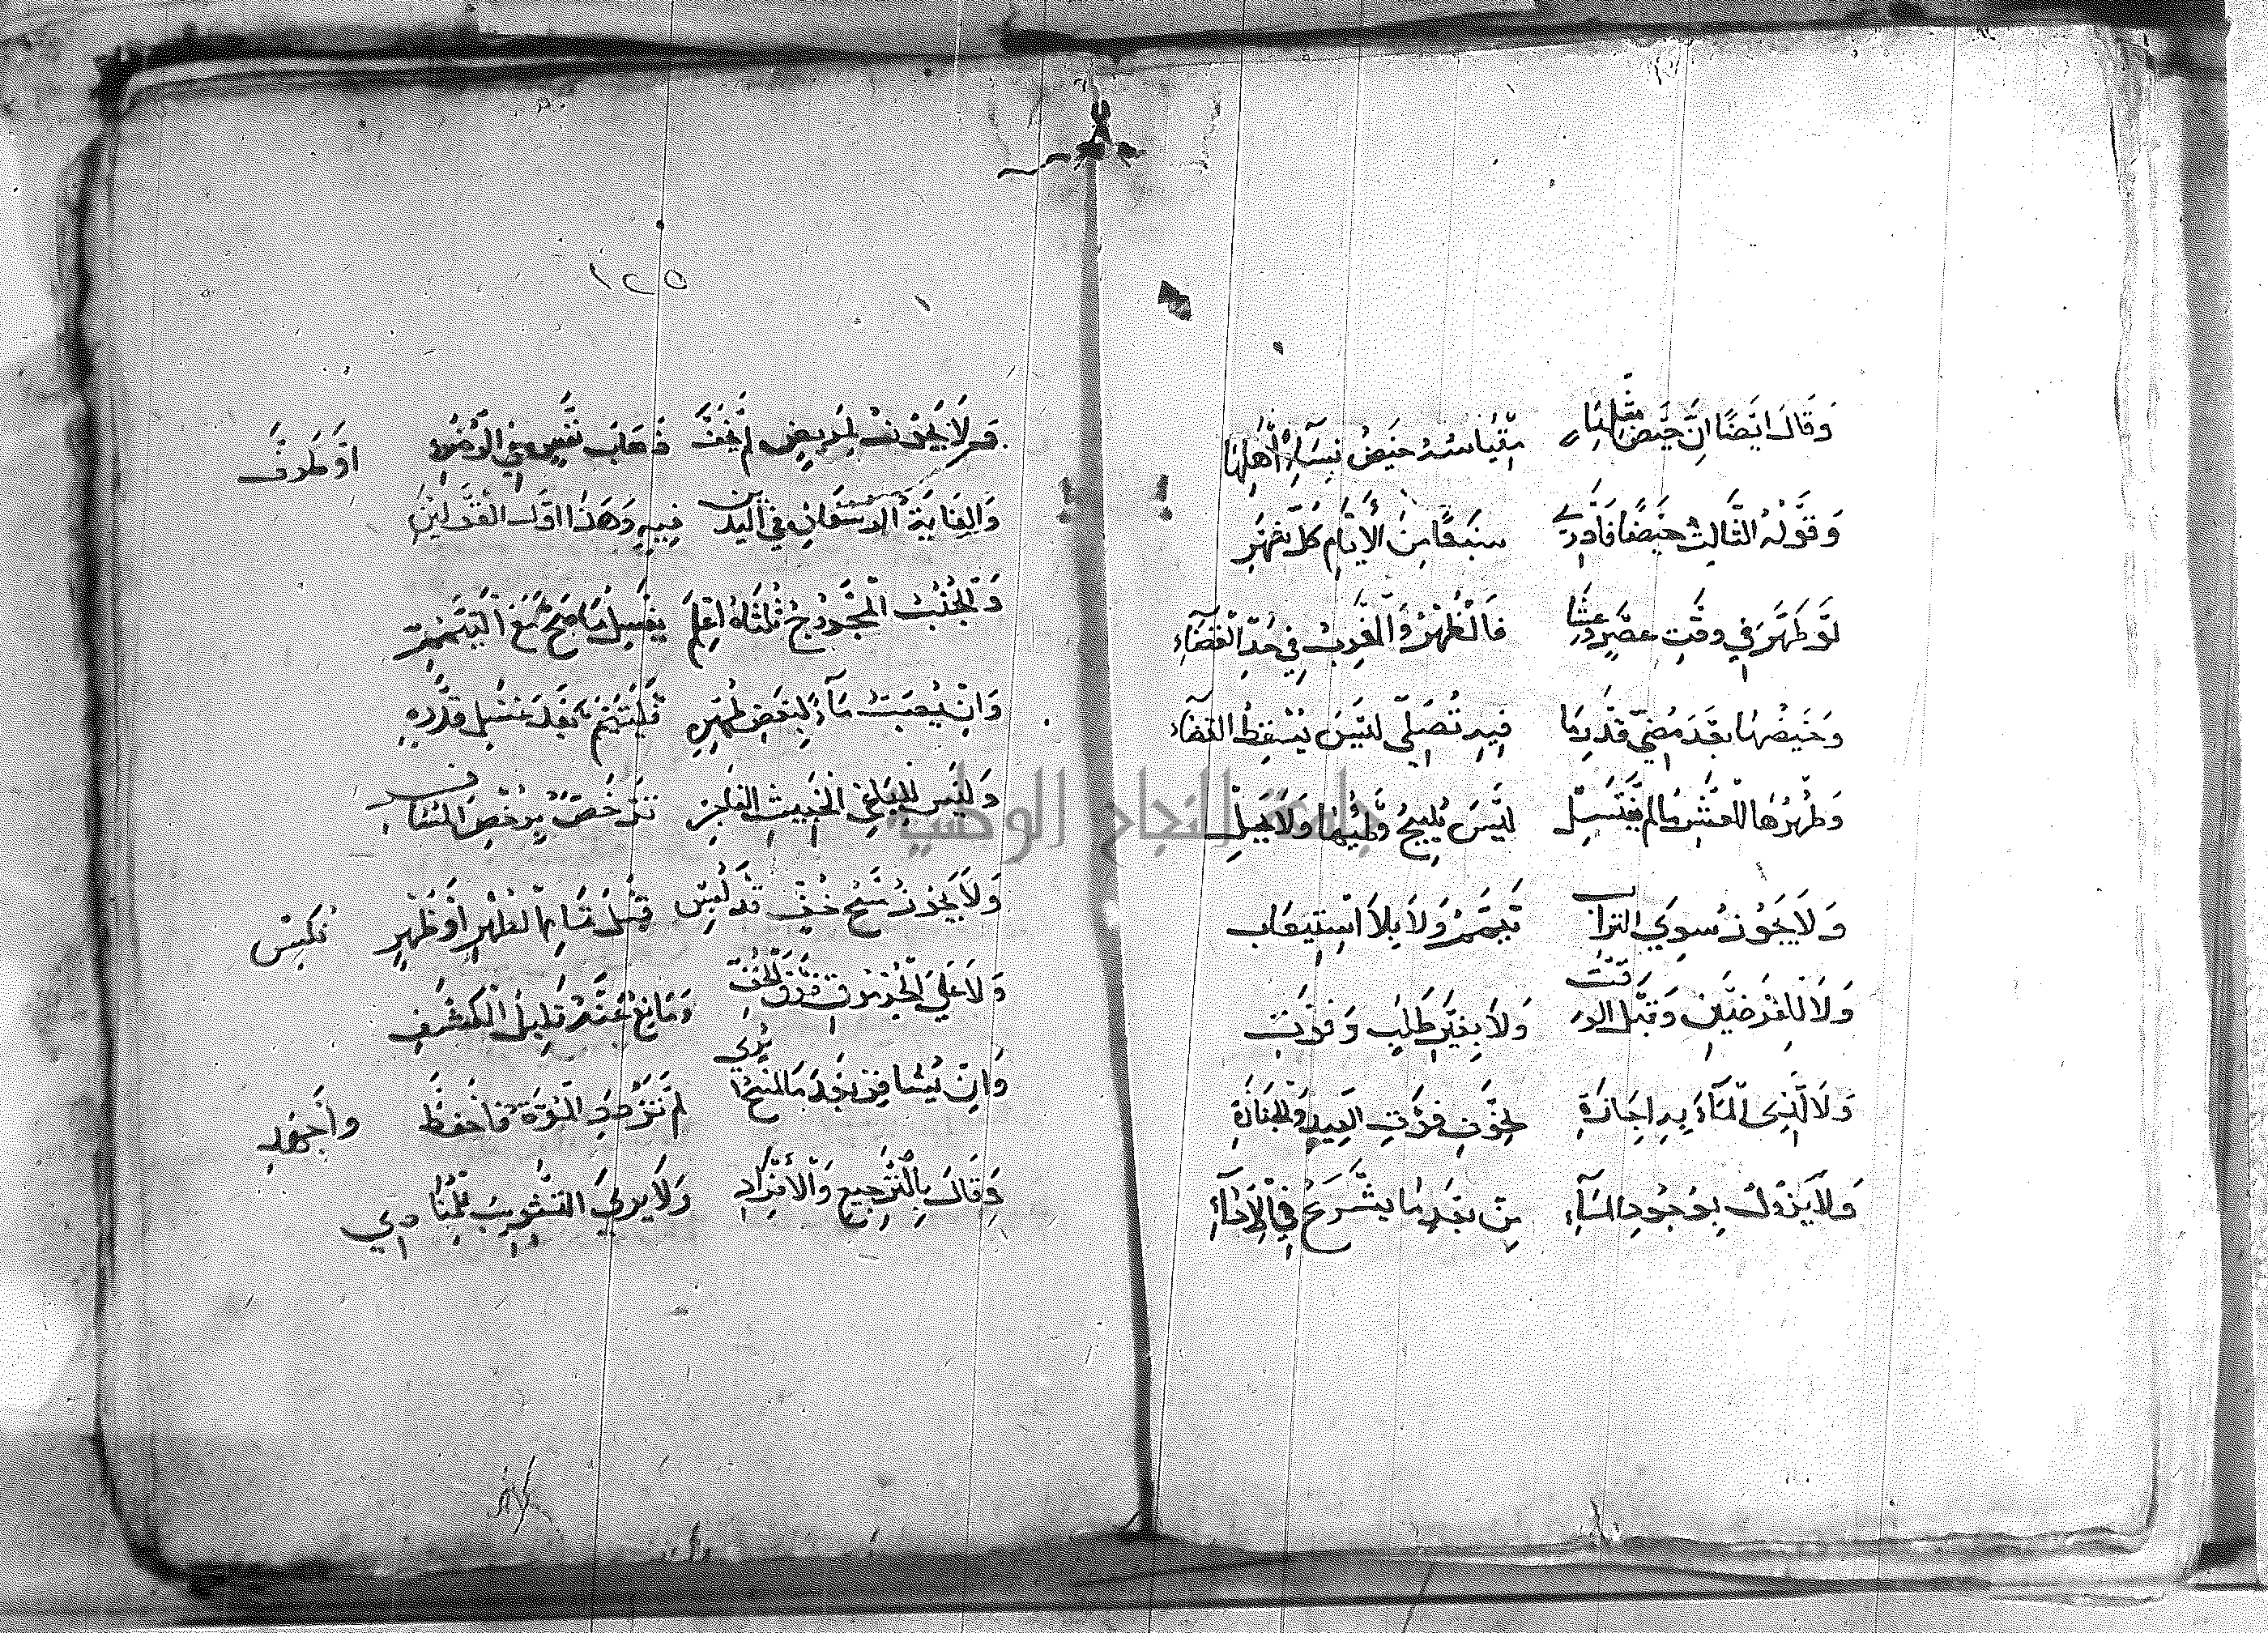 وَقَالَ ايْضًا انَّ حَيْضَ مِثْلِهَا مِقْيَاسُهُ حَيْضُ نِسَآءِ اَهْلِهَا
وَقَوْلُهُ الثَّالِثُ حَيْضًا فَادْرِ سَبْعًا مِنَ الْأَيَّامِ كُلَّ شَهْرِ
لَوْ طَهُرَ فِي وَقْتِ عَصْرٍ وَعِشَا فَالظُّهْرُ وَالْمَغْرِبُ فِي حَدِّ الْقَضَآءِ
وَحَيْضُهَا بَعْدَ مُضِيِّ قَدْرِ مَا فِيهِ تُصَلِّي لَيْسَ يُسْقِطُ الْقَضَآءَ
وَطُهْرُهَا لِلْعَشْرِ مَا لَمْ تَغْتَسِلْ لَيْسَ يُبِيحُ وَطْيَهَا وَلَا يُحِلْ
وَلَا يَجُوزُ سِوَى التُّرَابِ تَيَمُّمٌ وَلَا بِلَا اسْتِيعَابِ
وَلَا لِلْفَرْضَيْنِ وَقَبْلَ الْوَقْتِ وَلَا بِغَيْرِ طَلَبٍ وَفَوْتِ
وَلَا الَّذِي الْمَآءُ بِهِ اِجَازَةِ لِخَوْفِ فَوْتِ الْعِيدِ وَالْجَنَازَةِ
وَلَا يَزُولُ بِوُجُودِ الْمَآءِ مِنْ بَعْدِ مَا يَشْرَعُ فِي الْأَدَآءِ
١٢٥
وَلَا يَجُوزُ لِمَرِيضٍ لَمْ يَخَفْ ذَهَابَ نَفْسٍ فِي الْوُضُوءِ اَوْ طَرَفْ
فِيهِ وَهَذَا اَوَّلُ الْقَوْلَيْنِ
وَالْجُنُبُ الْمَجْرُوحُ ثُلْثَاهُ اعْلَمْ يَغْسِلُ مَا صَحَّ مَعَ التَّيَمُّمِ
وَاِنْ يُصِبْ مَآءً لِبَعْضِ طُهْرِهِ فَلْيَتَيَمَّمْ بَعْدَ غَسْلِ قَدْرِهِ
وَلَيْسَ لِلْبَاغِي الْخَبِيثِ الْفَاجِرِ تَرَخُّصٌ بِرُخَصِ الْمُسَافِرِ
وَلَا يَجُوزُ مَسْحُ خُفٍّ قَدْ لُبِسْ قَبْلَ تَمَامِ الطُّهْرِ اَوْ طُهْرٍ نُكِسْ
وَلَا عَلَى الْجُرْمُوقِ فَوْقَ الْخُفِّ وَمَانِعٌ عَنْهُ قَلِيلُ الْكَشْفِ
وَاِنْ يُسَافِرْ بَعْدَ مَا الْمَسْحَ ابْتُدِي لَمْ تَزْدَدِ الْمُدَّةُ فَاحْفَظْ وَاجْهَدِ
وَقَالَ بِالتَّرْجِيعِ وَالْأَفْرَادِ وَلَا يَرَى التَّثْوِيبَ